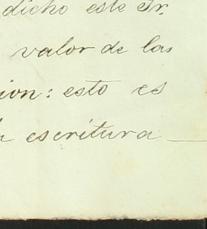 dicho este Sr.
valor de las
ion: esto es
escritura